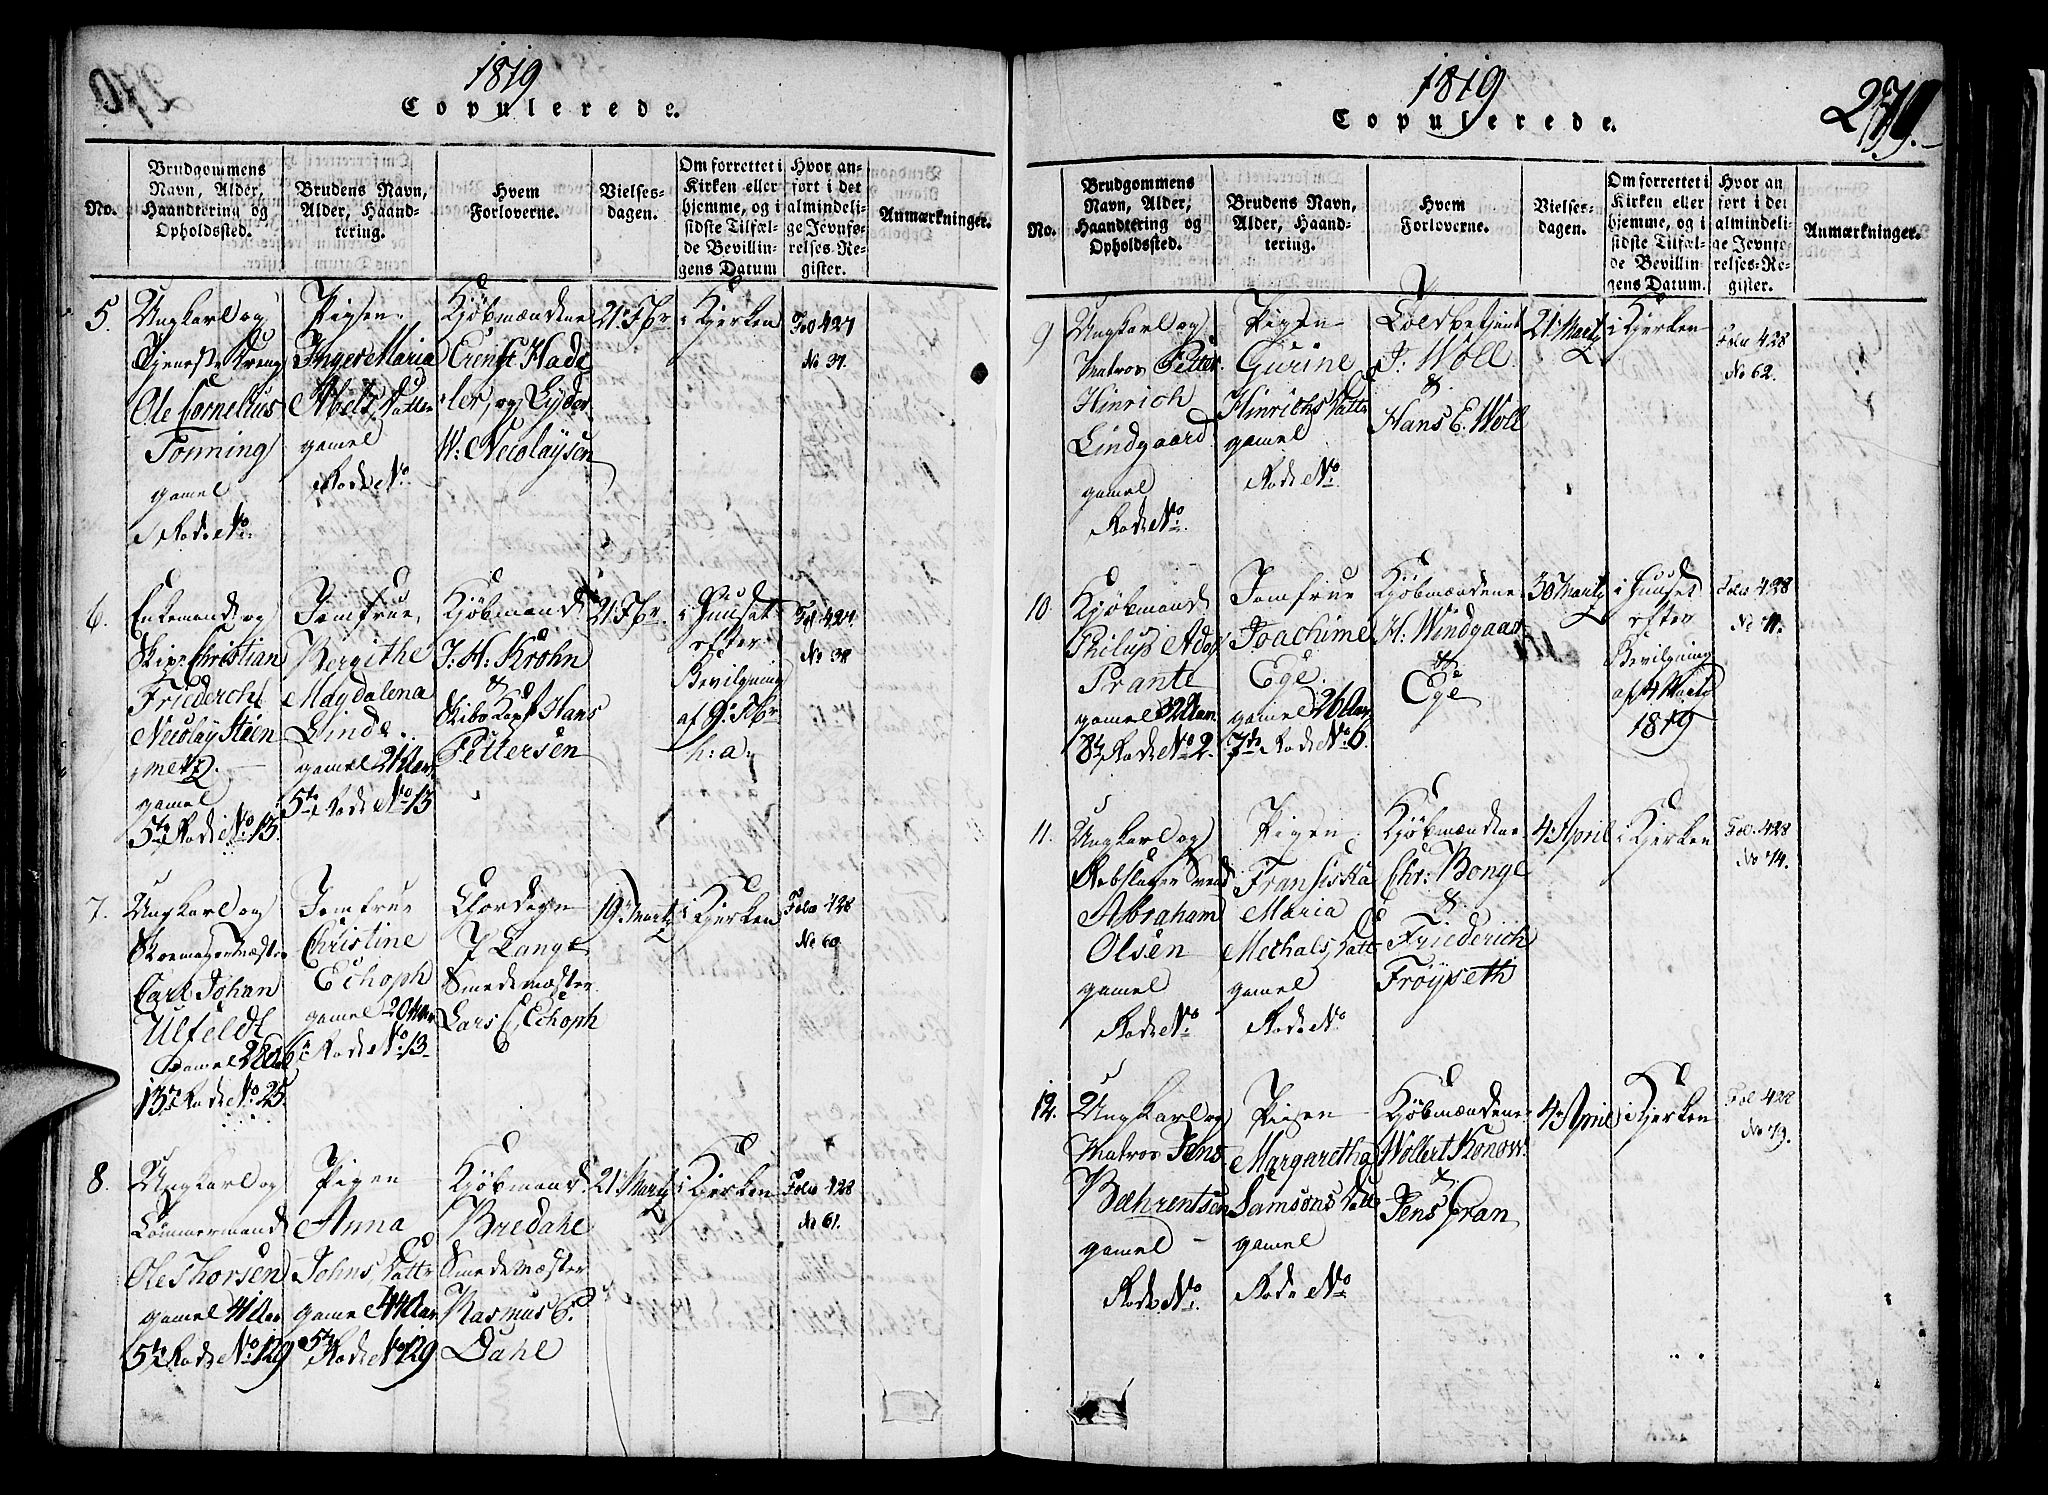 1819
Copulerede.
No.
Brudgommens
Navn, Alder,
Haandtering og
Opholdssted.
Brudens Navn,
Alder, Haand-
tering.
Hvem
Forloverne.
Vielses-
dagen.
Om forrettet i
Kirken eller
hjemme, og i
sidste Tilfæl-
de Bevillin-
gens Datum
Hvor an-
ført i det
almindeli-
ge Jevnfø-
relses-Re-
gister.
Anmærkninger.
5.
Ungkarl og
Ole Cornelius
Tonning
gamel
Rode No
Pigen
Inger Maria
Abels Datter
gamel
Rode No
Kjøbmændene
Ernst Hade
ler, og Lyder
W: Nicolaysen
21 Fbr
i Kjerken
Fol 427
No 37.
6.
Enkemand og
Skip: Christian
Friederich
Nicolay Stein
metz.
gamel
5te Rode No 13.
Jomfrue
Bergithe
Magdalena
Linde.
gamel 21 Aar
5te Rode No 13
Kjøbmand
J: H: Krohn
&
Skibs Capt Hans
Pettersen
21 Fbr.
i Huuset
efter
Bevilgning
af 9: Fbr
h: a:
Fol 427
No 38
7.
Ungkarl og
Skomager Mæster
Carl Johan
Ulfeldt
gamel 28 Aar
13 Rode No 25.
Jomfrue
Christine
Echoph
gamel 20 Aar
6te Rode No 13
Klordegn
J Lange
Smedemæster
Lars C. Echoph
19 Martz
i Kjerken
Folio 428
No 60
8.
Ungkarl og
Tømmermand
Ole Thorsen
gamel 41 Aar
5te Rode No 129
Pigen
Anna
Johns Datter
gamel 44 Aar
5te Rode No 129
Kjøbmand
Bredahl
Smedemæster
Rasmus C.
Dahl
21 Martz
i Kjerken
Folio 428
No 61.
1819
Copulerede.
279.
No.
Brudgommens
Navn, Alder,
Haandtering og
Opholdssted.
Brudens Navn,
Alder, Haand-
tering.
Hvem
Forloverne.
Vielses-
dagen.
Om forrettet i
Kirken eller
hjemme, og i
sidste Tilfæl-
de Bevillin-
gens Datum.
Hvor an
ført i det
almindeli-
ge Jevnfø-
relses-Re-
gister.
Anmærkninger.
9
Ungkarl og
Matros Petter
Hinrich
Lindgaard
gamel
Rode No
Pigen
Gurine
Hinrichs Dattr
gamel
Rode No
Toldbetjent
J. Woll
&
Hans E. Woll
21 Martz
i Kjerken
Folio 428
No 62.
10.
Kjøbmand
Philip Adoy
Prante
gamel 32 Aar
8de Rode No 2.
Jomfrue
Joachime
Ege.
gamel 26 Aar
7de Rode No 6.
Kjøbmændene
H. Windgaar
&
Ege
30 Martz
i Huuset
efter
Bevilgning
af 4 Martz
1819
Folio 428
No 71.
11.
Ungkarl og
Rebslager Svend
Abraham
Olsen
gamel
Rode No
Pigen
Fransiska
Maria
Mechals Datt
gamel
Rode No
Kjøbmændene
Chr: Bonge
&
Friederich
Frøyseth
4 April
i Kjerken
Fol. 428
No 74.
12.
Ungkarl og
Matros Jens
Bæhrentsen
gamel
Rode No
Pigen
Margaretha
Samsons Datt
gamel
Rode No
Kjøbmændene
Wollert Konow
&
Jens Gran
4 April
i Kjerken
Fol 428
No 79.